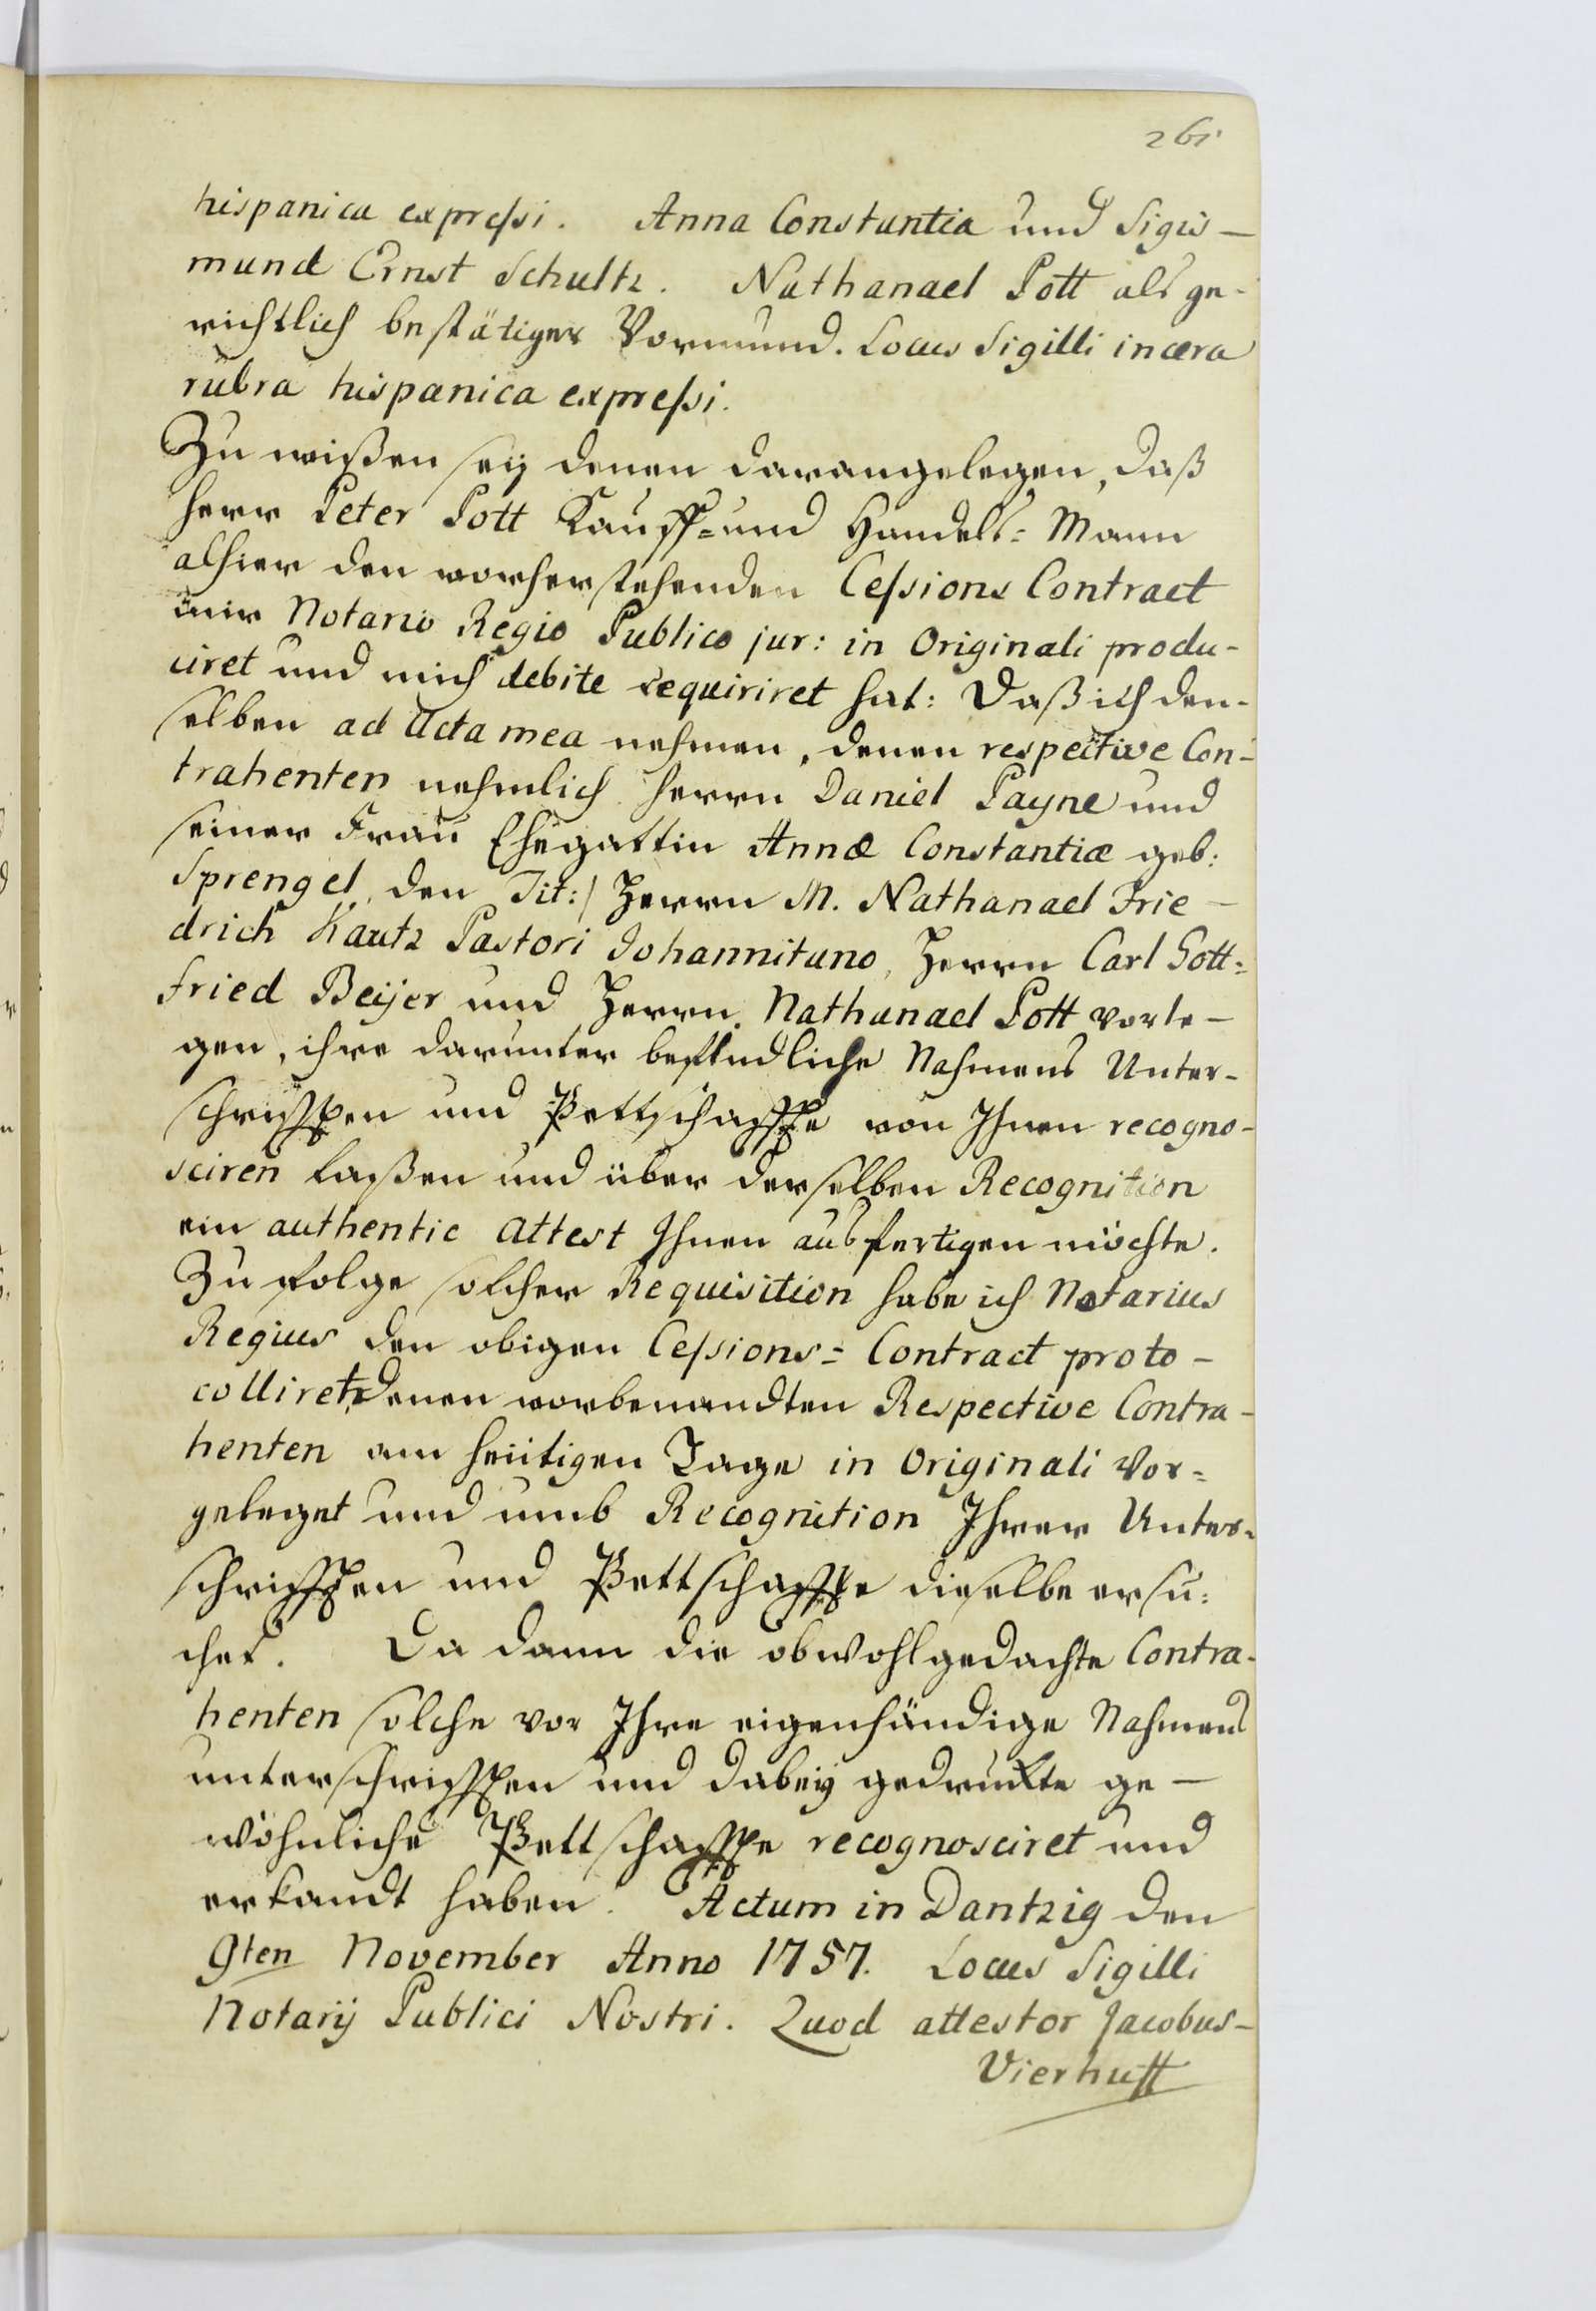 261
hispanica expreſsi. Anna Constantia und Sigis-
mund Ernst Schultz. Nathanael Pott als ge-
richtlich bestätiger Vormund. Locus Sigilli in cera
rubra hispanica expreſsi.
Zu wißen seÿ denen darangelegen, daß
Herr Peter Pott Kauff- und Handels-Mann
alhier den vorherstehenden Ceſsions Contract
mir Notario Regio Publico jur: in Originali produ-
ciret und mich debite requiriret hat: Daß ich den-
selben ad Acta mea nehmen, denen respective Con-
trahenten nehmlich Herrn Daniel Payne und
seiner Frau Ehegattin Annæ Constantiæ geb:
Sprengel, den Tit:/ Herrn M. Nathanael Frie-
drich Kautz Pastori Johannitano, Herrn Carl Gott=
fried Beijer und Herrn Nathanael Pott vorle-
gen, ihre darunter befindliche Nahmens Unter-
schrifften und Pettschaffte von Ihnen recogno-
sciren laßen und über derselben Recognition
ein authentic Attest Ihnen ausfertigen möchte.
Zu folge solcher Requisition habe ich Notarius
Regius den obigen Ceſsions= Contract proto-
colliret, denen vorbenandten Respective Contra-
henten am heütigen Tage in Originali Vor=
geleget und umb Recognition Ihrer Unter=
schrifften und Pettschaffte dieselbe ersu=
chet. Da dann die obwohlgedachte Contra-
henten solche vor Ihre eigenhändige Nahmens
unterschrifften und dabeÿ gedruckte ge-
wöhnliche Pettschaffte recognosciret und
erkandt haben. Actum in Dantzig den
9ten November Anno 1757. Locus Sigilli
Notarij Publici Nostri. Quod attestor Jacobus-
Vierhuff